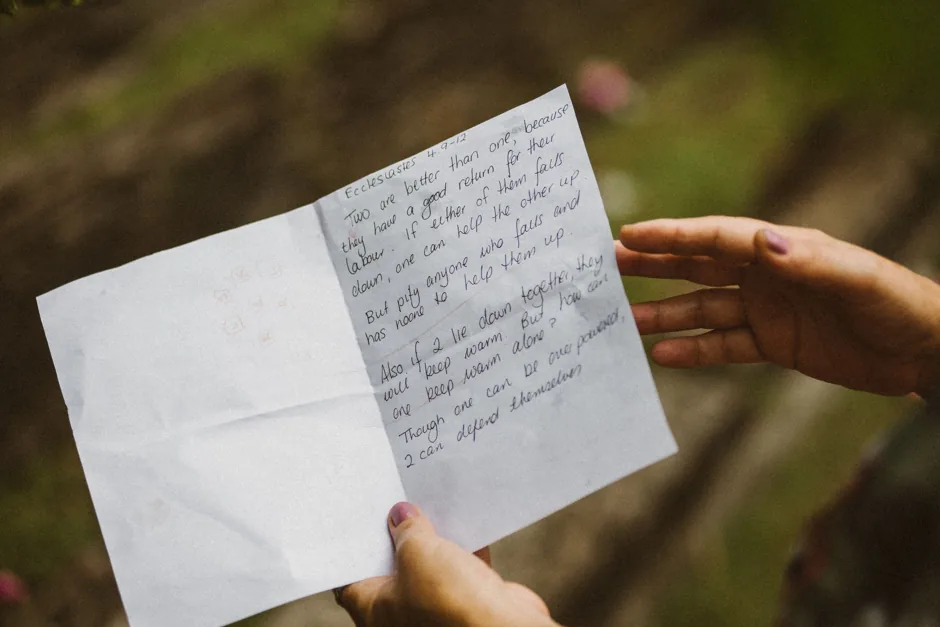 Ecclesiastes 4.9-12
Two are better than one, because
they have a good return for their
labour. If either of them falls
down, one can help the other up.
But pity anyone who falls and
has noone to help them up.
Also if 2 lie down together, they
will keep warm. But how can
one keep warm alone?
Though one can be over powered,
2 can defend themselves